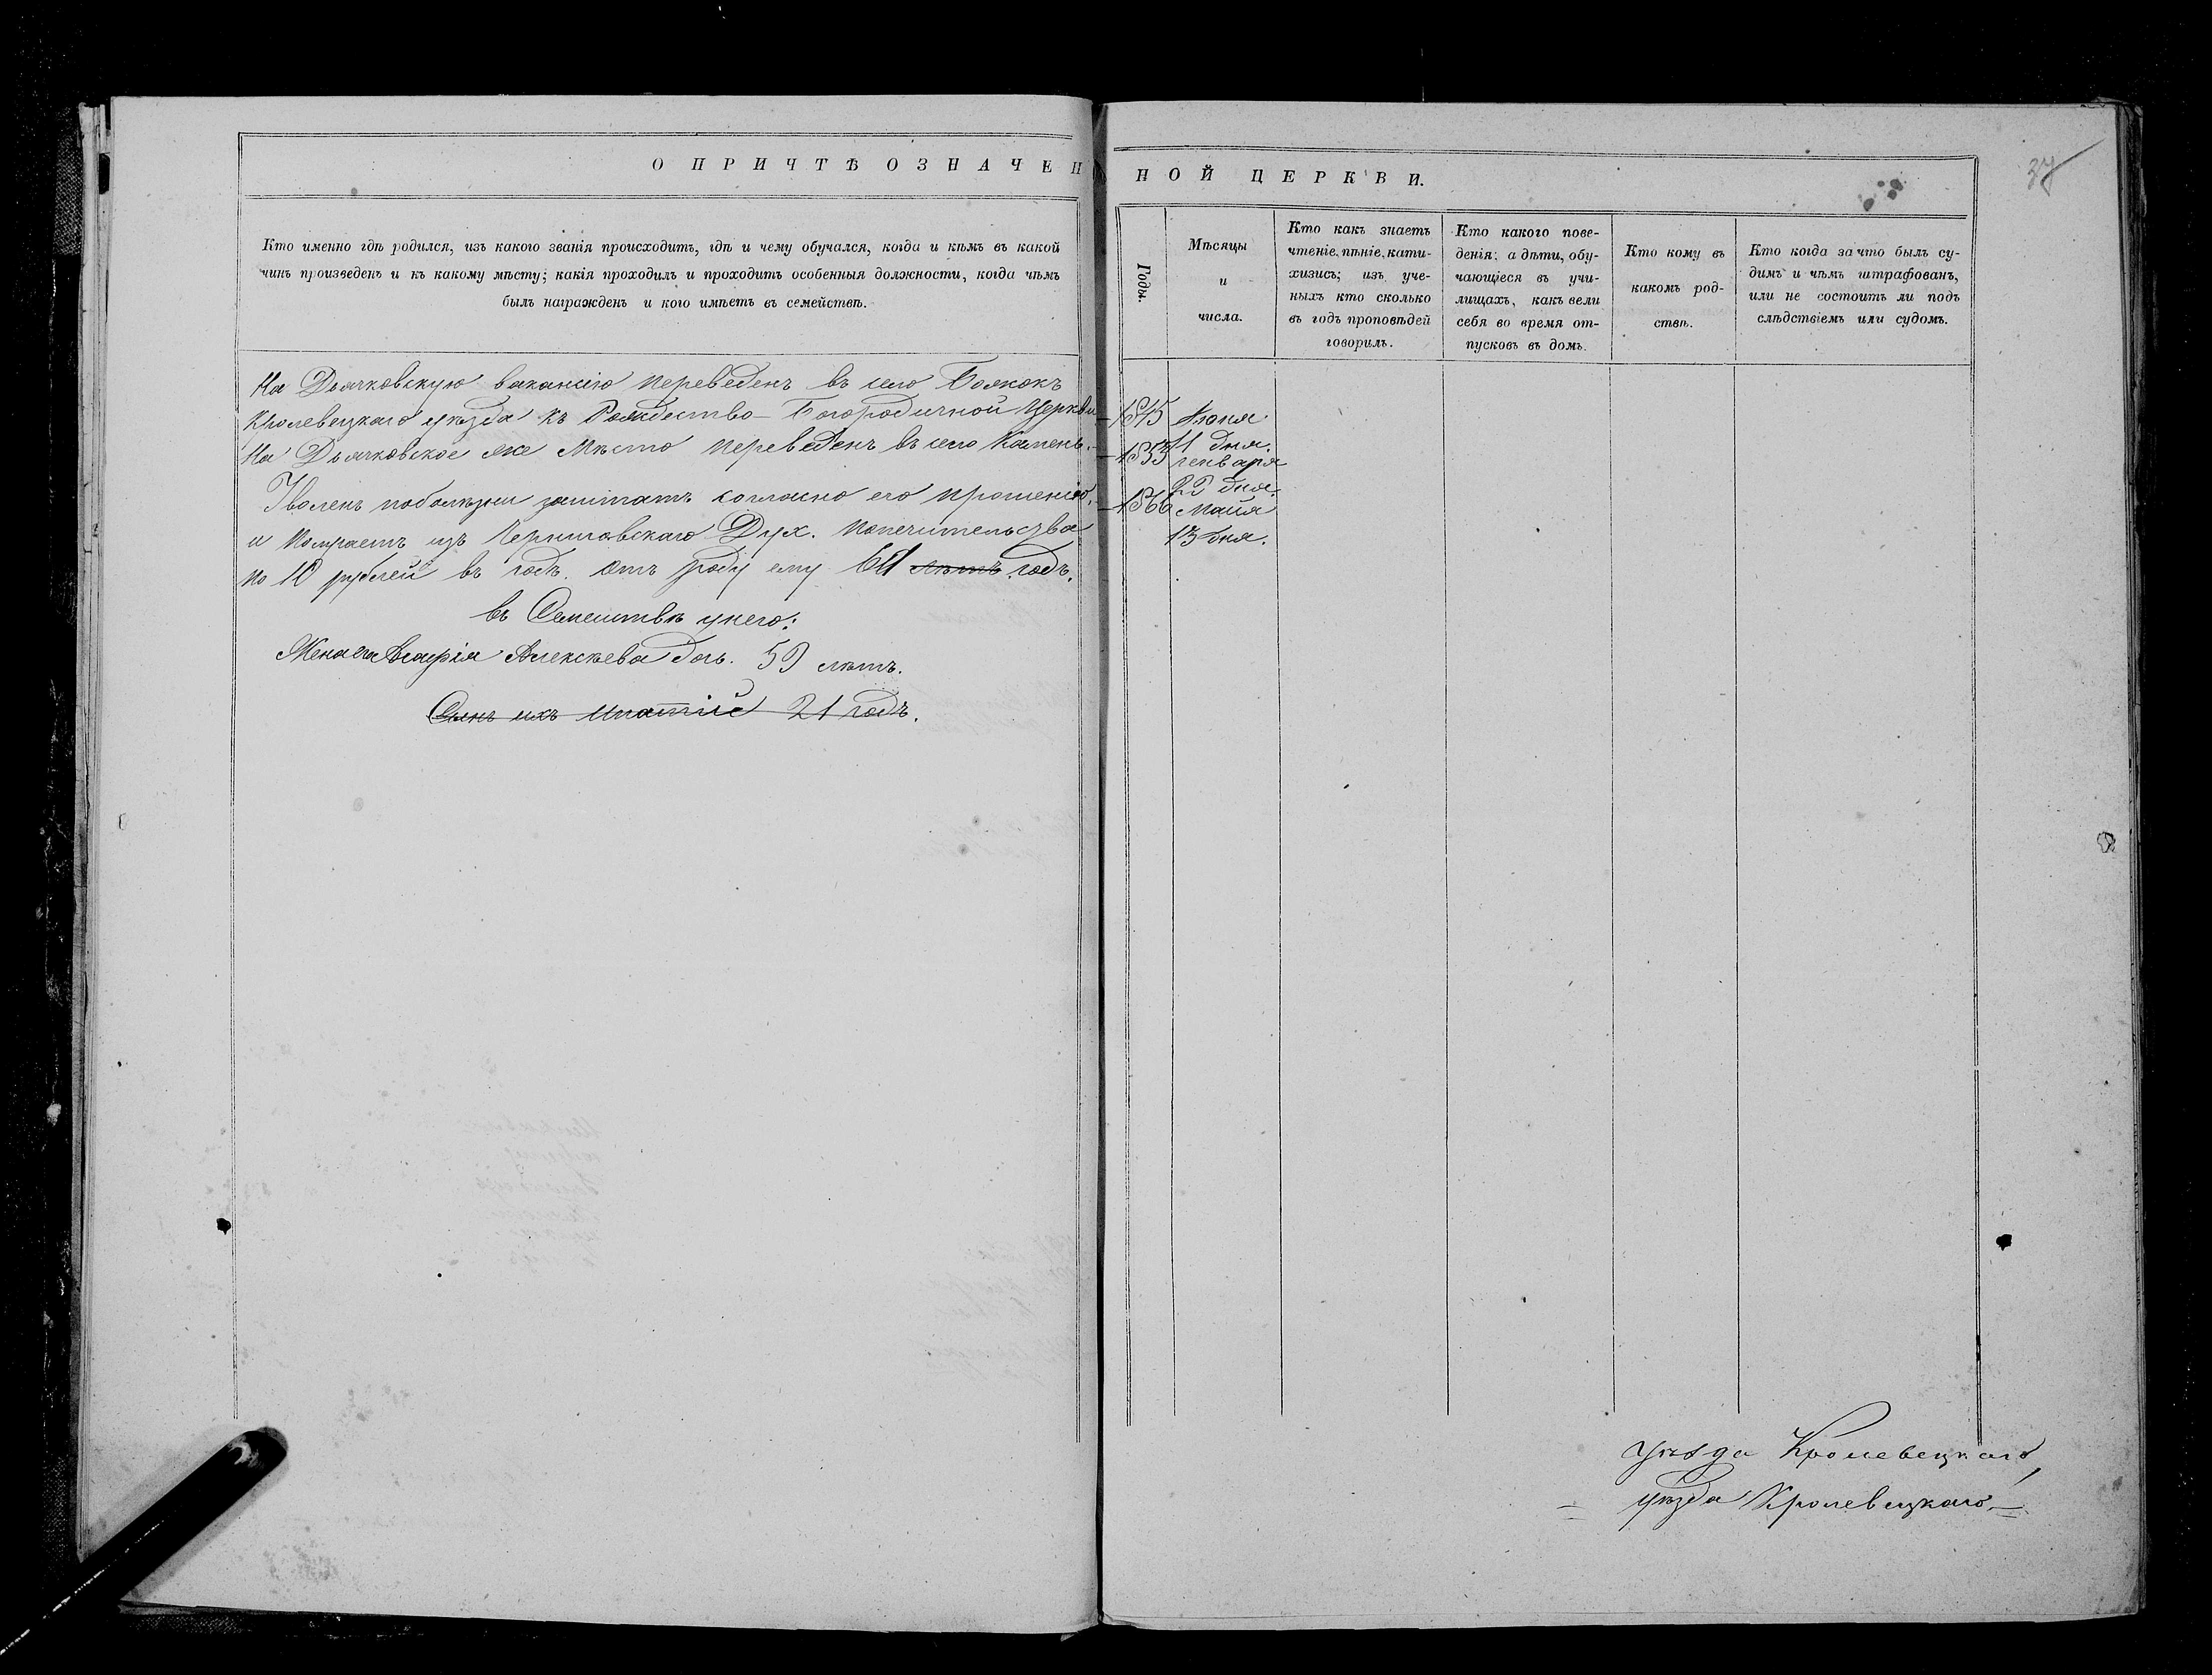 О ПРИЧТѢ ОЗНАЧЕННОЙ ЦЕРКВИ.
37
Кто именно гдѣ родился, изъ какого званія происходитъ, гдѣ и чему обучался, когда и кѣмъ въ какой
чинъ произведенъ и къ какому мѣсту; какія проходилъ и проходитъ особенныя должности, когда чѣмъ
былъ награжденъ и кого имѣетъ въ семействѣ.
Годы.
Мѣсяцы
и
числа.
Кто какъ знаетъ
чтеніе, пѣніе, кати-
хизисъ; изъ уче-
ныхъ кто сколько
въ годъ проповѣдей
говорилъ.
Кто какого пове-
денія; а дѣти, обу-
чающіеся въ учи-
лищахъ, какъ вели
себя во время от-
пусковъ въ домъ.
Кто кому въ
какомъ род-
ствѣ.
Кто когда за что былъ су-
димъ и чѣмъ штрафованъ,
или не состоитъ ли подъ
слѣдствіемъ или судомъ.
На Дьячковскую вакансію переведенъ въ село
Кролевецкаго уѣзда къ Рождество-Богородичной Церкви
На Дьячковское же Мѣсто переведенъ въ село Камень.
Уволенъ поболѣзни заштатъ согласно его прошенію,
и получаетъ изъ Черниговскаго Дух. попечительства
по 10 рублей въ годъ. отъ роду ему 61 лѣтъ годъ.
въ Семействѣ у него:
Жена его Алексѣева дочь. 59 лѣтъ.
Сынъ ихъ Ипатій 21 годъ.
1845 Іюня
11 дня.
1853 генваря
22 дня.
1866 Майя
13 дня.
уѣзда Кролевецкаго,
уѣзда Кролевецкаго